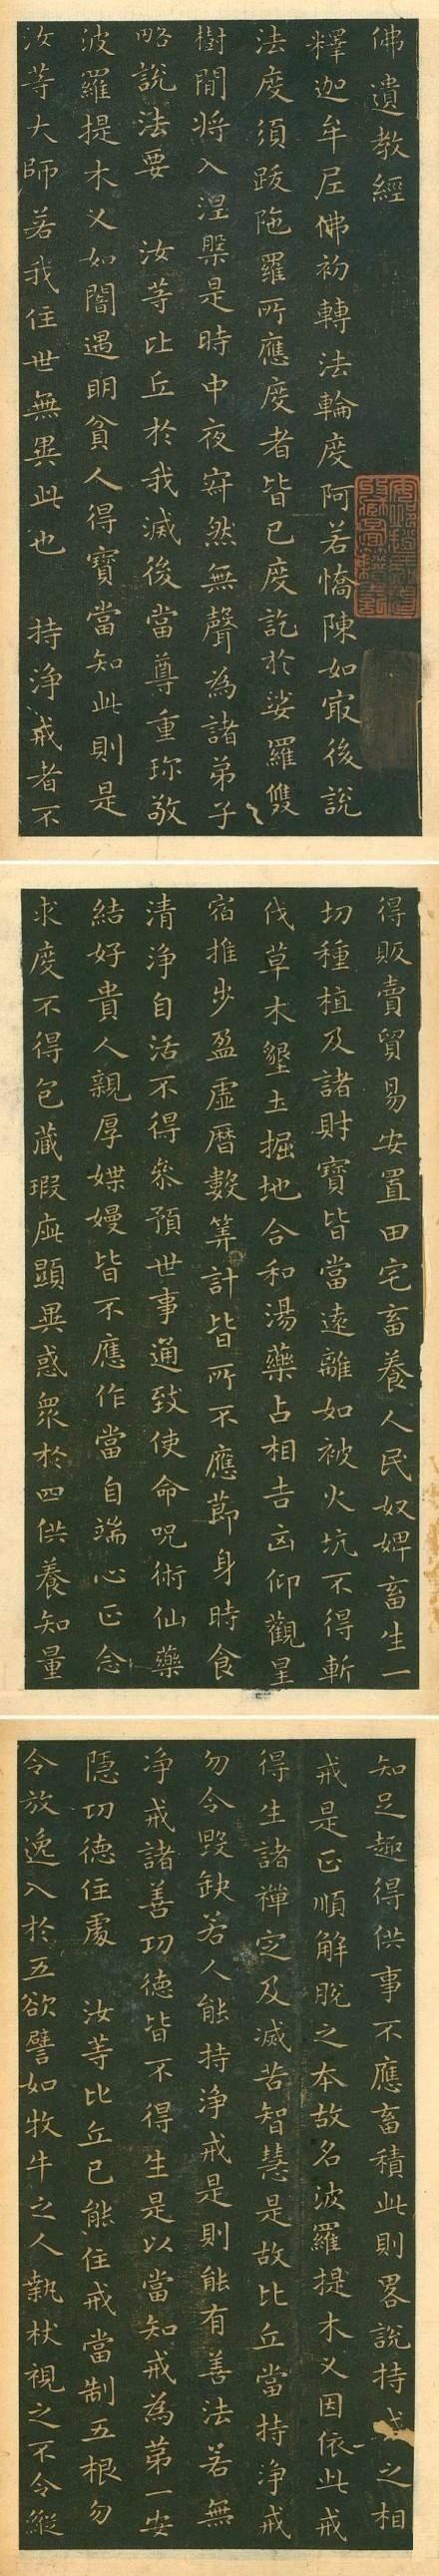 佛遺教經
釋迦牟尼佛初轉法輪度阿若憍陳如冣後說
法度須跋陁羅所應度者皆已度訖於娑羅雙
樹間將入涅槃是時中夜寂然無聲為諸弟子
略說法要 汝等比丘於我滅後當尊重珎敬
波羅提木义如闇遇明貧人得寶當知此則是
汝等大師若我住世無異此也 持淨戒者不
得販賣貿易安置田宅畜養人民奴婢畜生一
切種植及諸財寶皆當遠離如被火坑不得斬
伐草木墾土掘地合和湯藥占相吉凶仰觀星
宿推步盈虛曆數筭計皆所不應節身時食
清淨自活不得參預世事通致使命呪術仙藥
結好貴人親厚媟嫚皆不應作當自端心正念
求度不得包藏瑕疵顯異惑衆於四供養知量
知足趣得供事不應畜積此則畧說持戒之相
戒是正順解脫之本故名波羅提木义因依此戒
得生諸禪定及滅苦智慧是故比丘當持淨戒
勿令毀缺若人能持淨戒是則能有善法若無
淨戒諸善功德皆不得生是以當知戒為第一安
隱功德住處 汝等比丘已能住戒當制五根勿
令放逸入於五欲譬如牧牛之人執杖視之不令縱